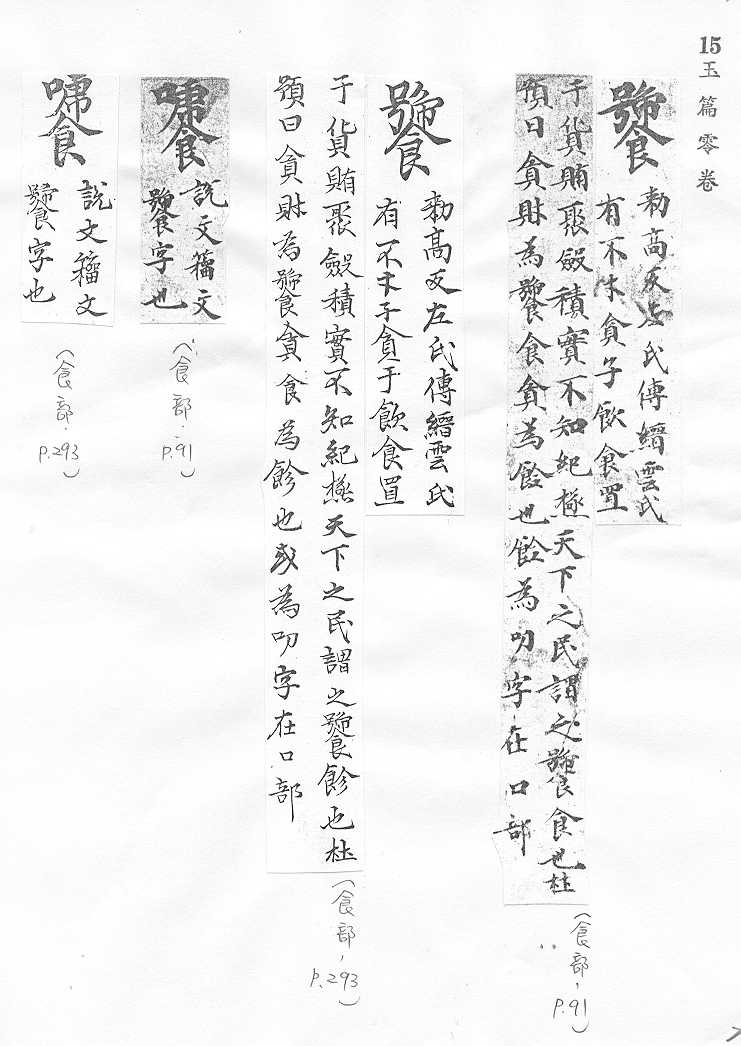 15
玉篇零卷
饕
勑高反左氏傳縉雲氏
有不才子貪于飲食置
于貨賄聚斂積實不知紀極天下之民謂之饕食也杜
預曰貪財為饕食貪為也為叨字在口部
(食部,
P.91)
饕
勑高反左氏傳縉雲氏
有不才子貪于飲食置
于貨賄聚斂積實不知紀極天下之民謂之饕飻也杜
預曰貪財為饕貪食為飻也或為叨字在口部
(食部,
P.293)
說文籀文
饕字也
(食部,
P.91)
說文籀文
饕字也
(食部,
P.293)